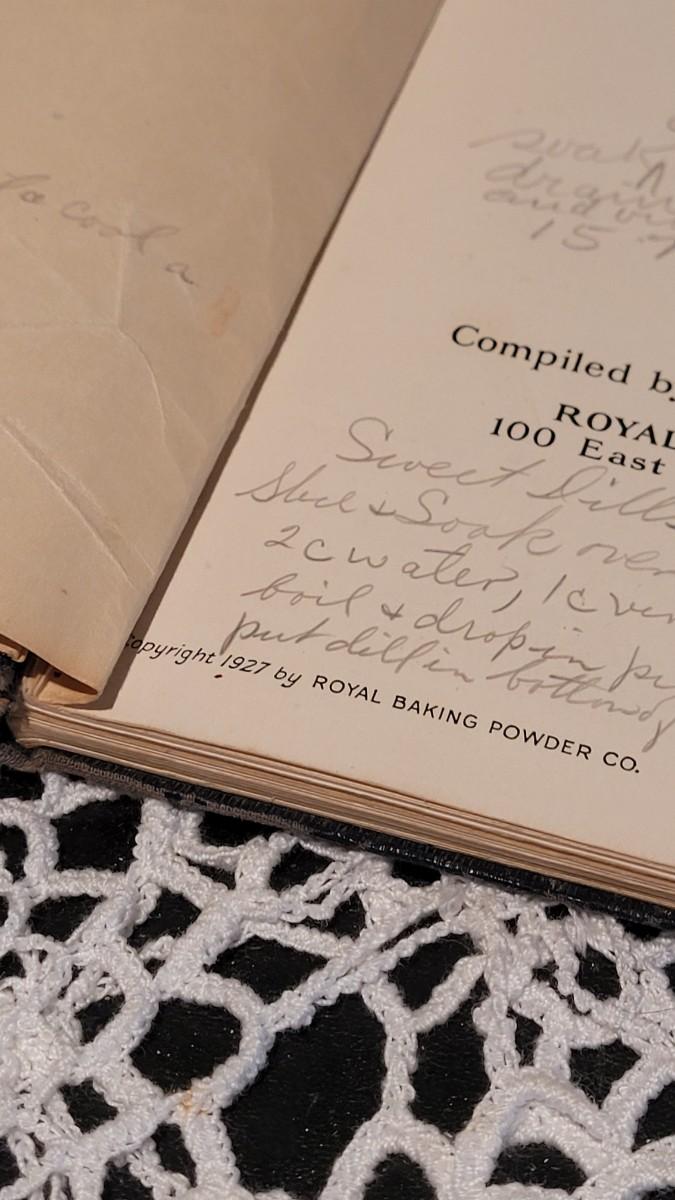 to cool a
soak
15
Compiled by
ROYAL
100 East
Sweet Dills
& Soak over
2c water, 1c
boil & drop in
put dill in bottom of
Copyright 1927 by ROYAL BAKING POWDER CO.